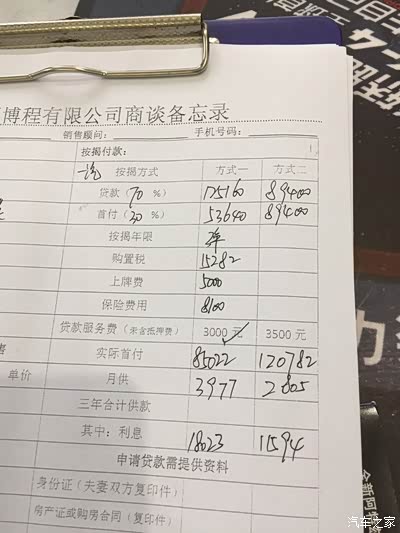 博程有限公司商谈备忘录
销售顾问: 手机号码:
按揭付款:
按揭方式 方式一 方式二
贷款（70 %） 125160 89400
首付（30 %） 53640 89400
按揭年限
购置税 15282
上牌费 5000
保险费用 8100
贷款服务费（未含抵押费） 3000 元 3500 元
实际首付 85022 120782
单价 月供 3977 2805
三年合计供款
其中：利息 18023 11594
申请贷款需提供资料
身份证（夫妻双方复印件）
房产证或购房合同（复印件）
全新阿特兹
汽车之家